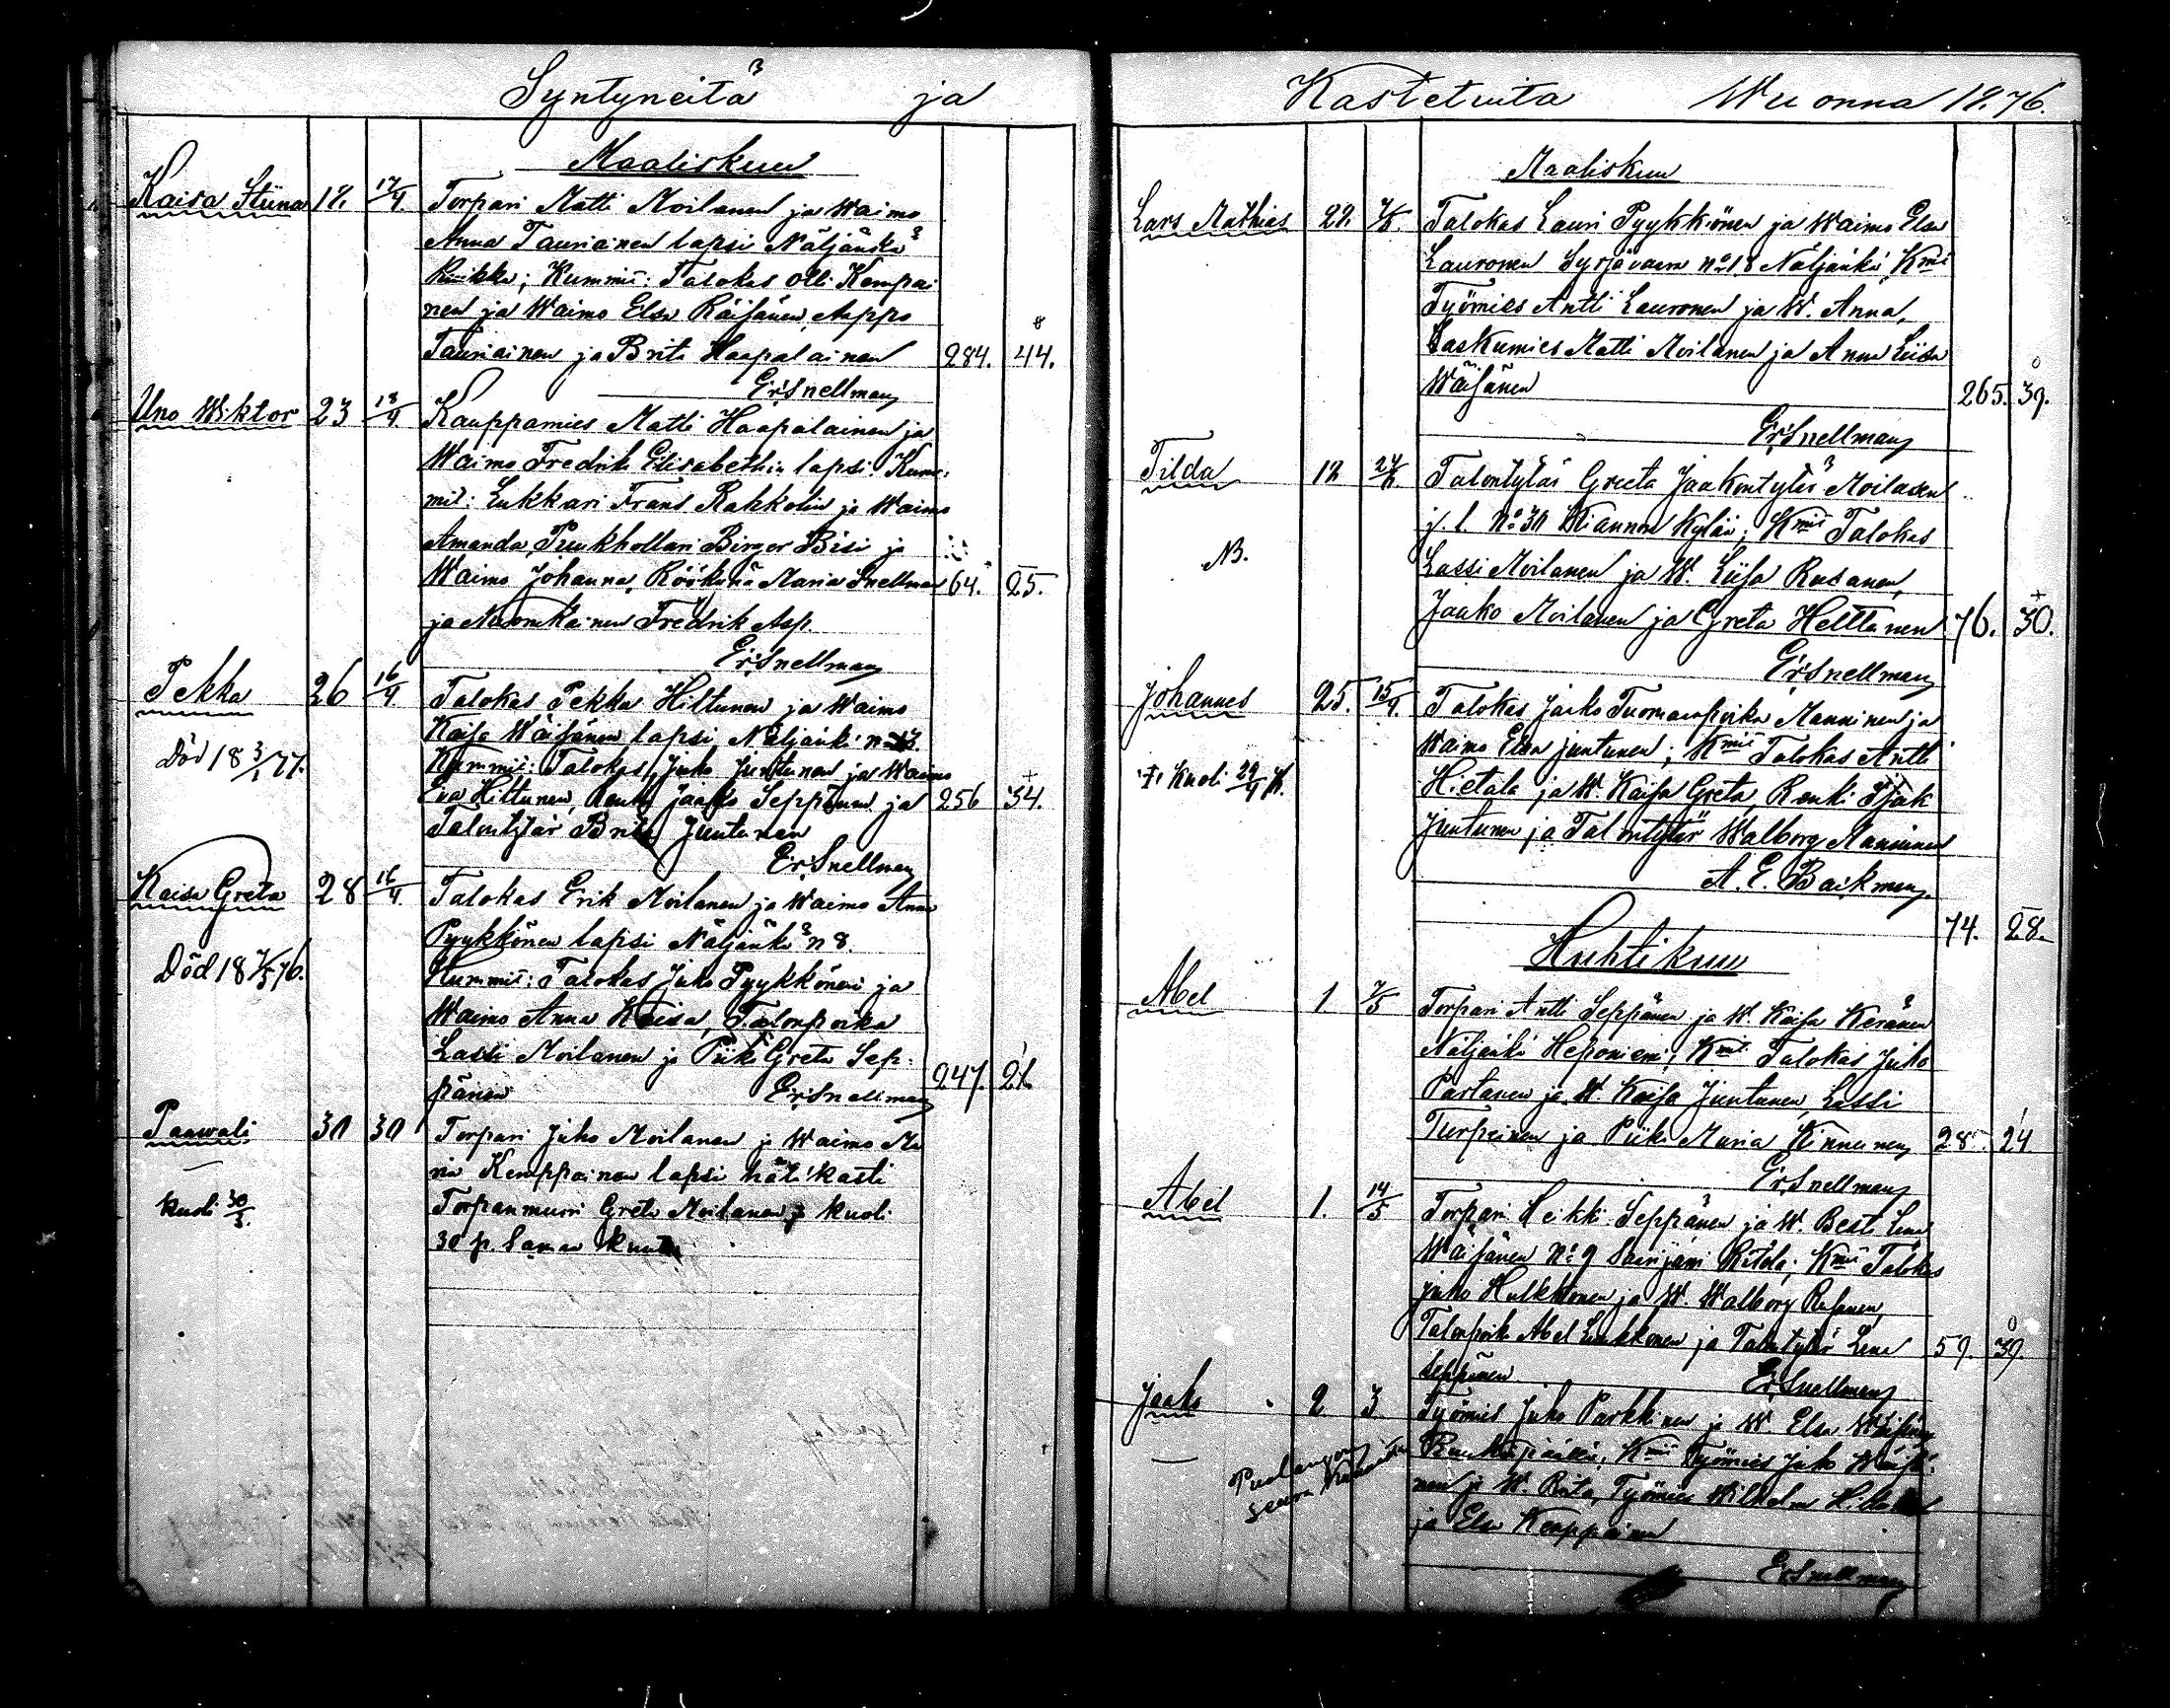 Syntyneitä ja
Maaliskuu
Kaisa Stiina 18. 17/4. Torpari Matti Moilanen ja Waimo
Anna Tauriainen lapsi Näljänkä
Kummit: Talokas Olli Kempai
nen ja Waimo Elsa Räisänen, Aappo
Tauriainen ja Brita Haapalainen 284. 44.
E. Snellman
Uno Wiktor 23 18/4 Kauppamies Matti Haapalainen ja
Waimo Fredrika Elisabethin lapsi. Kum:
mit: Lukkari Frans Rahkolin ja Waimo
Amanda, Pruukhollari Birger Bisi ja
Waimo Johanna, Röökynä Maria Snellman 64. 25.
ja Nuorukainen Fredrik Asp.
E. Snellman
Pekka 26 16/4. Talokas Pekka Hiltunen ja Waimo
Kaisa Wäisänen lapsi Näljänkä
Död 18 3/1 77.
Kummit: Talokas Juho Juntunen ja Waimo
Eva Hiltunen, Renki Jaako Seppänen ja 256 34.
Talontytär Brita Juntunen
E. Snellman
Kaisa Greta 28 16/4 Talokas Erik Moilanen ja Waimo Anna
Pyykkönen lapsi Näljänkä n 8.
Död 18 7/5 76.
Kummit: Talokas Juho Pyykkönen ja
Waimo Anna Kaisa, Talonpoika
Lassi Moilanen ja Piika Greta Sep:
pänen 247. 21
E. Snellman
Paawali 30 30 Torpari Juho Moilanen ja Waimo Ma
ria Kemppainen lapsi hätä kasti
kuoli 30/3.
Torpanmuori Greta Moilanen ja kuoli
30 p. Samaa kuuta
Kastetuita Wuonna 1876.
Maaliskuu
Lars Mathias 22. Talokas Lauri Pyykkönen ja Waimo Elsa
Lauronen Syrjävaara no 18 Näljänkä, Kmit
Työmies Antti Lauronen ja W. Anna,
Laskumies Matti Moilanen ja Anna Liisa
Wäisänen 265. 39.
E. Snellman
Tilda 12 Talontytär Greeta Jaakontytär Moilasen
j. l. No 30 Kiannan Kylän; Kmit Talokas
NB.
Lassi Moilanen ja W. Liisa Rusanen,
Jaako Moilanen ja Greta Helttunen 76. 30.
E. Snellman
Johannes 25. 15/4. Talokas Jaako Tuomaanpoika Manninen ja
Waimo Elsa Juntunen; Kmit Talokas Antti
Kuoli 29/4 76.
Hietala ja W. Kaisa Greta, Renki Isak
Juntunen ja Talontytär Walborg Manninen
A. E. Backman
74. 28.
Huhtikuu
Abel 1 7/5 Torpari Antti Seppänen ja W. Kaisa Keränen
Näljänkä Heponiemi; Kmit Talokas Juho
Partanen ja W. Kaisa Juntunen, Lassi
Turpeinen ja Piika Maria Kinnunen 28. 24
E. Snellman
Abel 1. 14/5 Torpari Heikki Seppänen ja W. Beata Lena
Wäisänen No 9 Ritola; Kmit Talokas
Juho Hulkkonen ja W. Walborg
Talonpoika Abel Lukkonen ja Talontytär Lena 59. 39.
Seppänen
E. Snellman
Jaako 2. 3 Työmies Juho Parkkinen ja W. Elsa
Kmit Työmies Juho
Puolangan
seura
nen ja W. Rita, Työmies Wilhelm
ja Elsa Kemppainen
E. Snellman